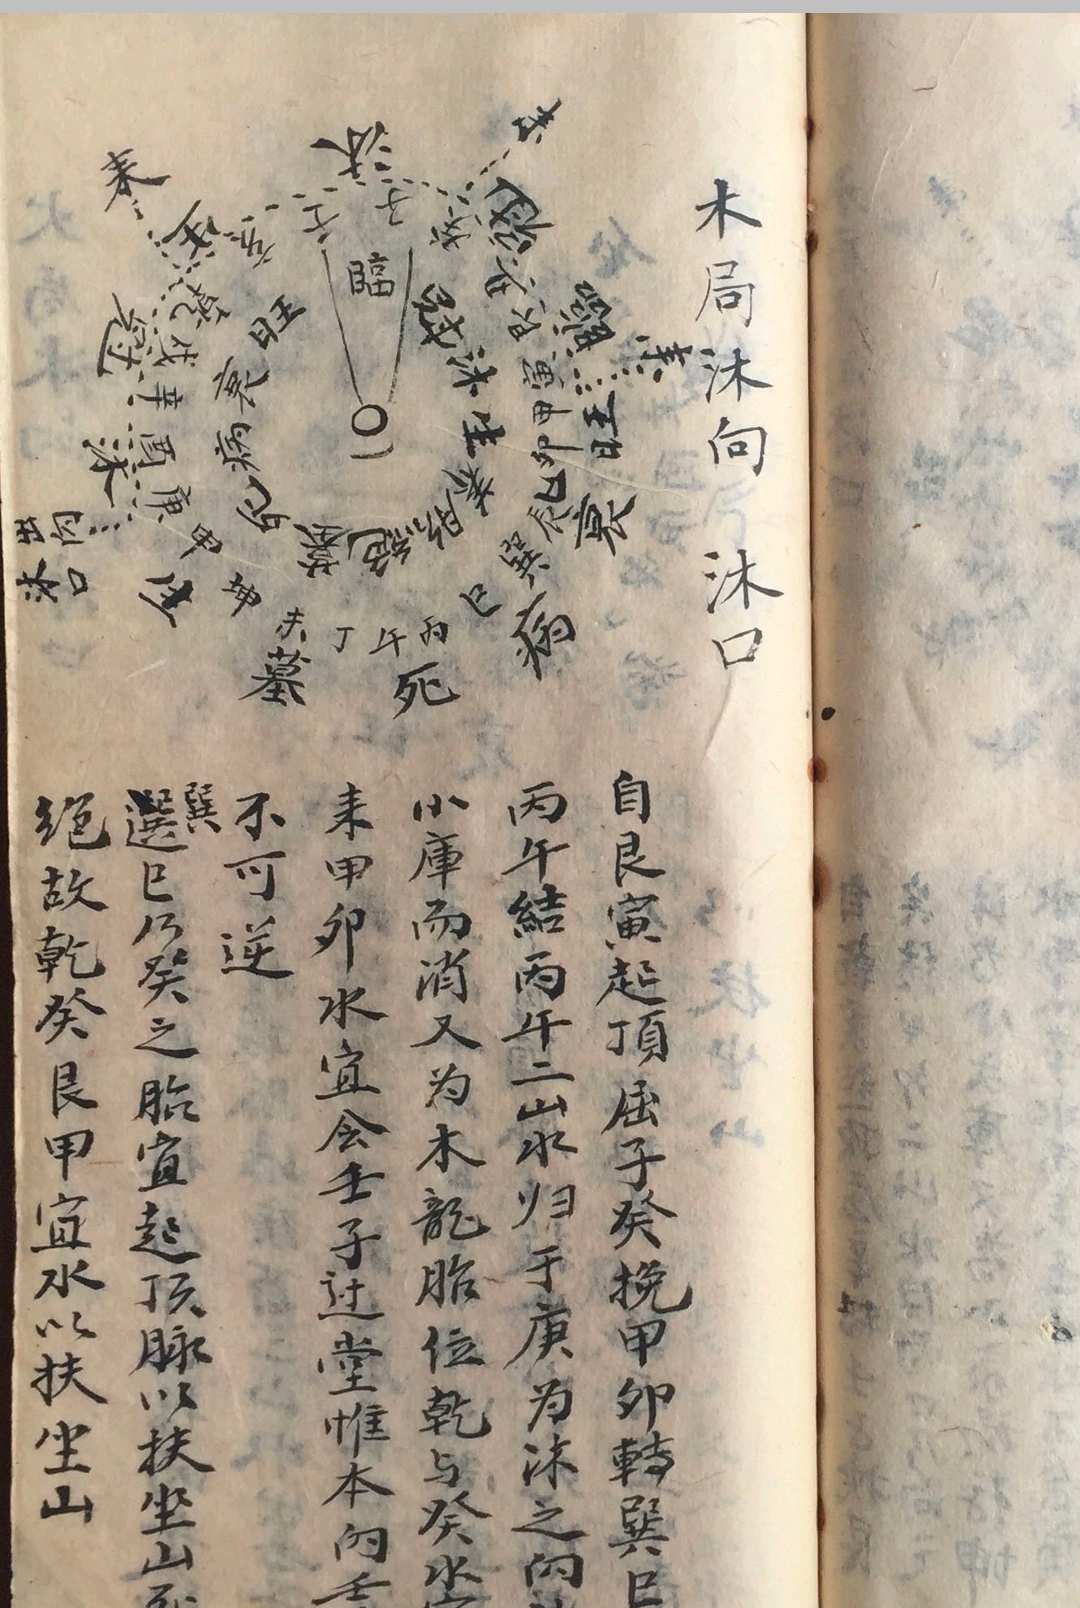 木局沐向 沐口
自艮寅起頂屈子癸挽甲卯轉巽巳
丙午結丙午二山水归于庚为沐之的
小庫而消又为木龍胎位乾与癸水宜
来甲卯水宜会壬子过堂惟本的壬
不可逆
巽
選巳乃癸之胎宜起顶脉以扶坐山
绝故乾癸艮甲宜水以扶坐山
臨
沐
旺
衰
病
死
墓
絕
冠
沐
生
養
旺
衰
病
死
墓
生
冠
沐
来
来
来
壬
子
癸
艮
寅
甲
卯
乙
辰
巽
巳
丙
午
丁
未
坤
申
庚
酉
辛
戌
乾
亥